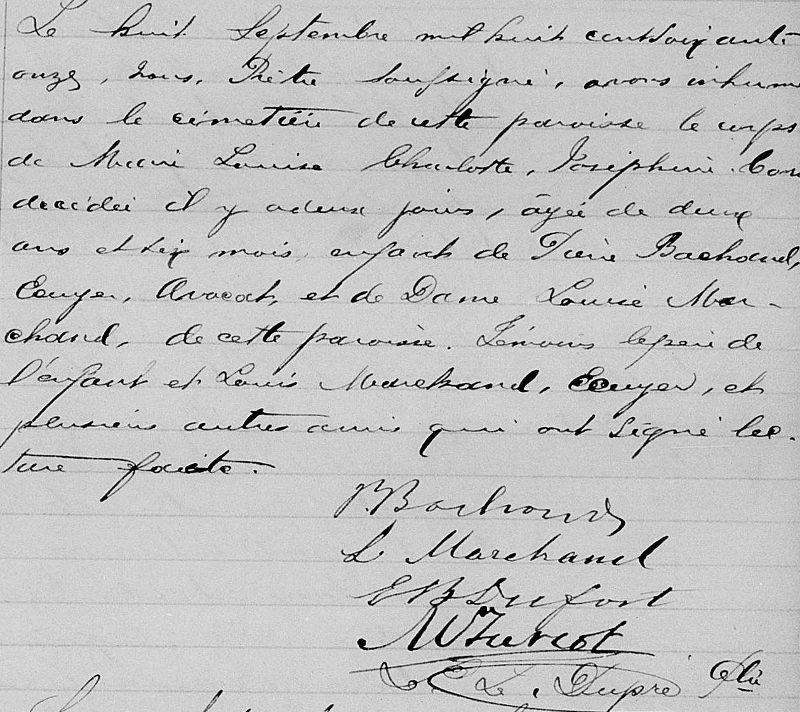 Le huit Septembre mil huit cent soixante
onze, nous, Prêtre soussigné, avons inhumé
dans le cimetière de cette paroisse le corps
de Marie Louise Charlotte, Joséphine
décédée il y a deux jours, âgée de deux
ans et six mois, enfant de Pierre Bachand,
Ecuyer, Avocat, et de Dame Louise Mar-
chand, de cette paroisse. Témoins le père de
l'enfant et Louis Marchand, Ecuyer, et
plusieurs autres amis qui ont signé lec-
ture faite.
P. Bachand
L Marchand
E B Dufort
Turcot
L. Dupré Ptre